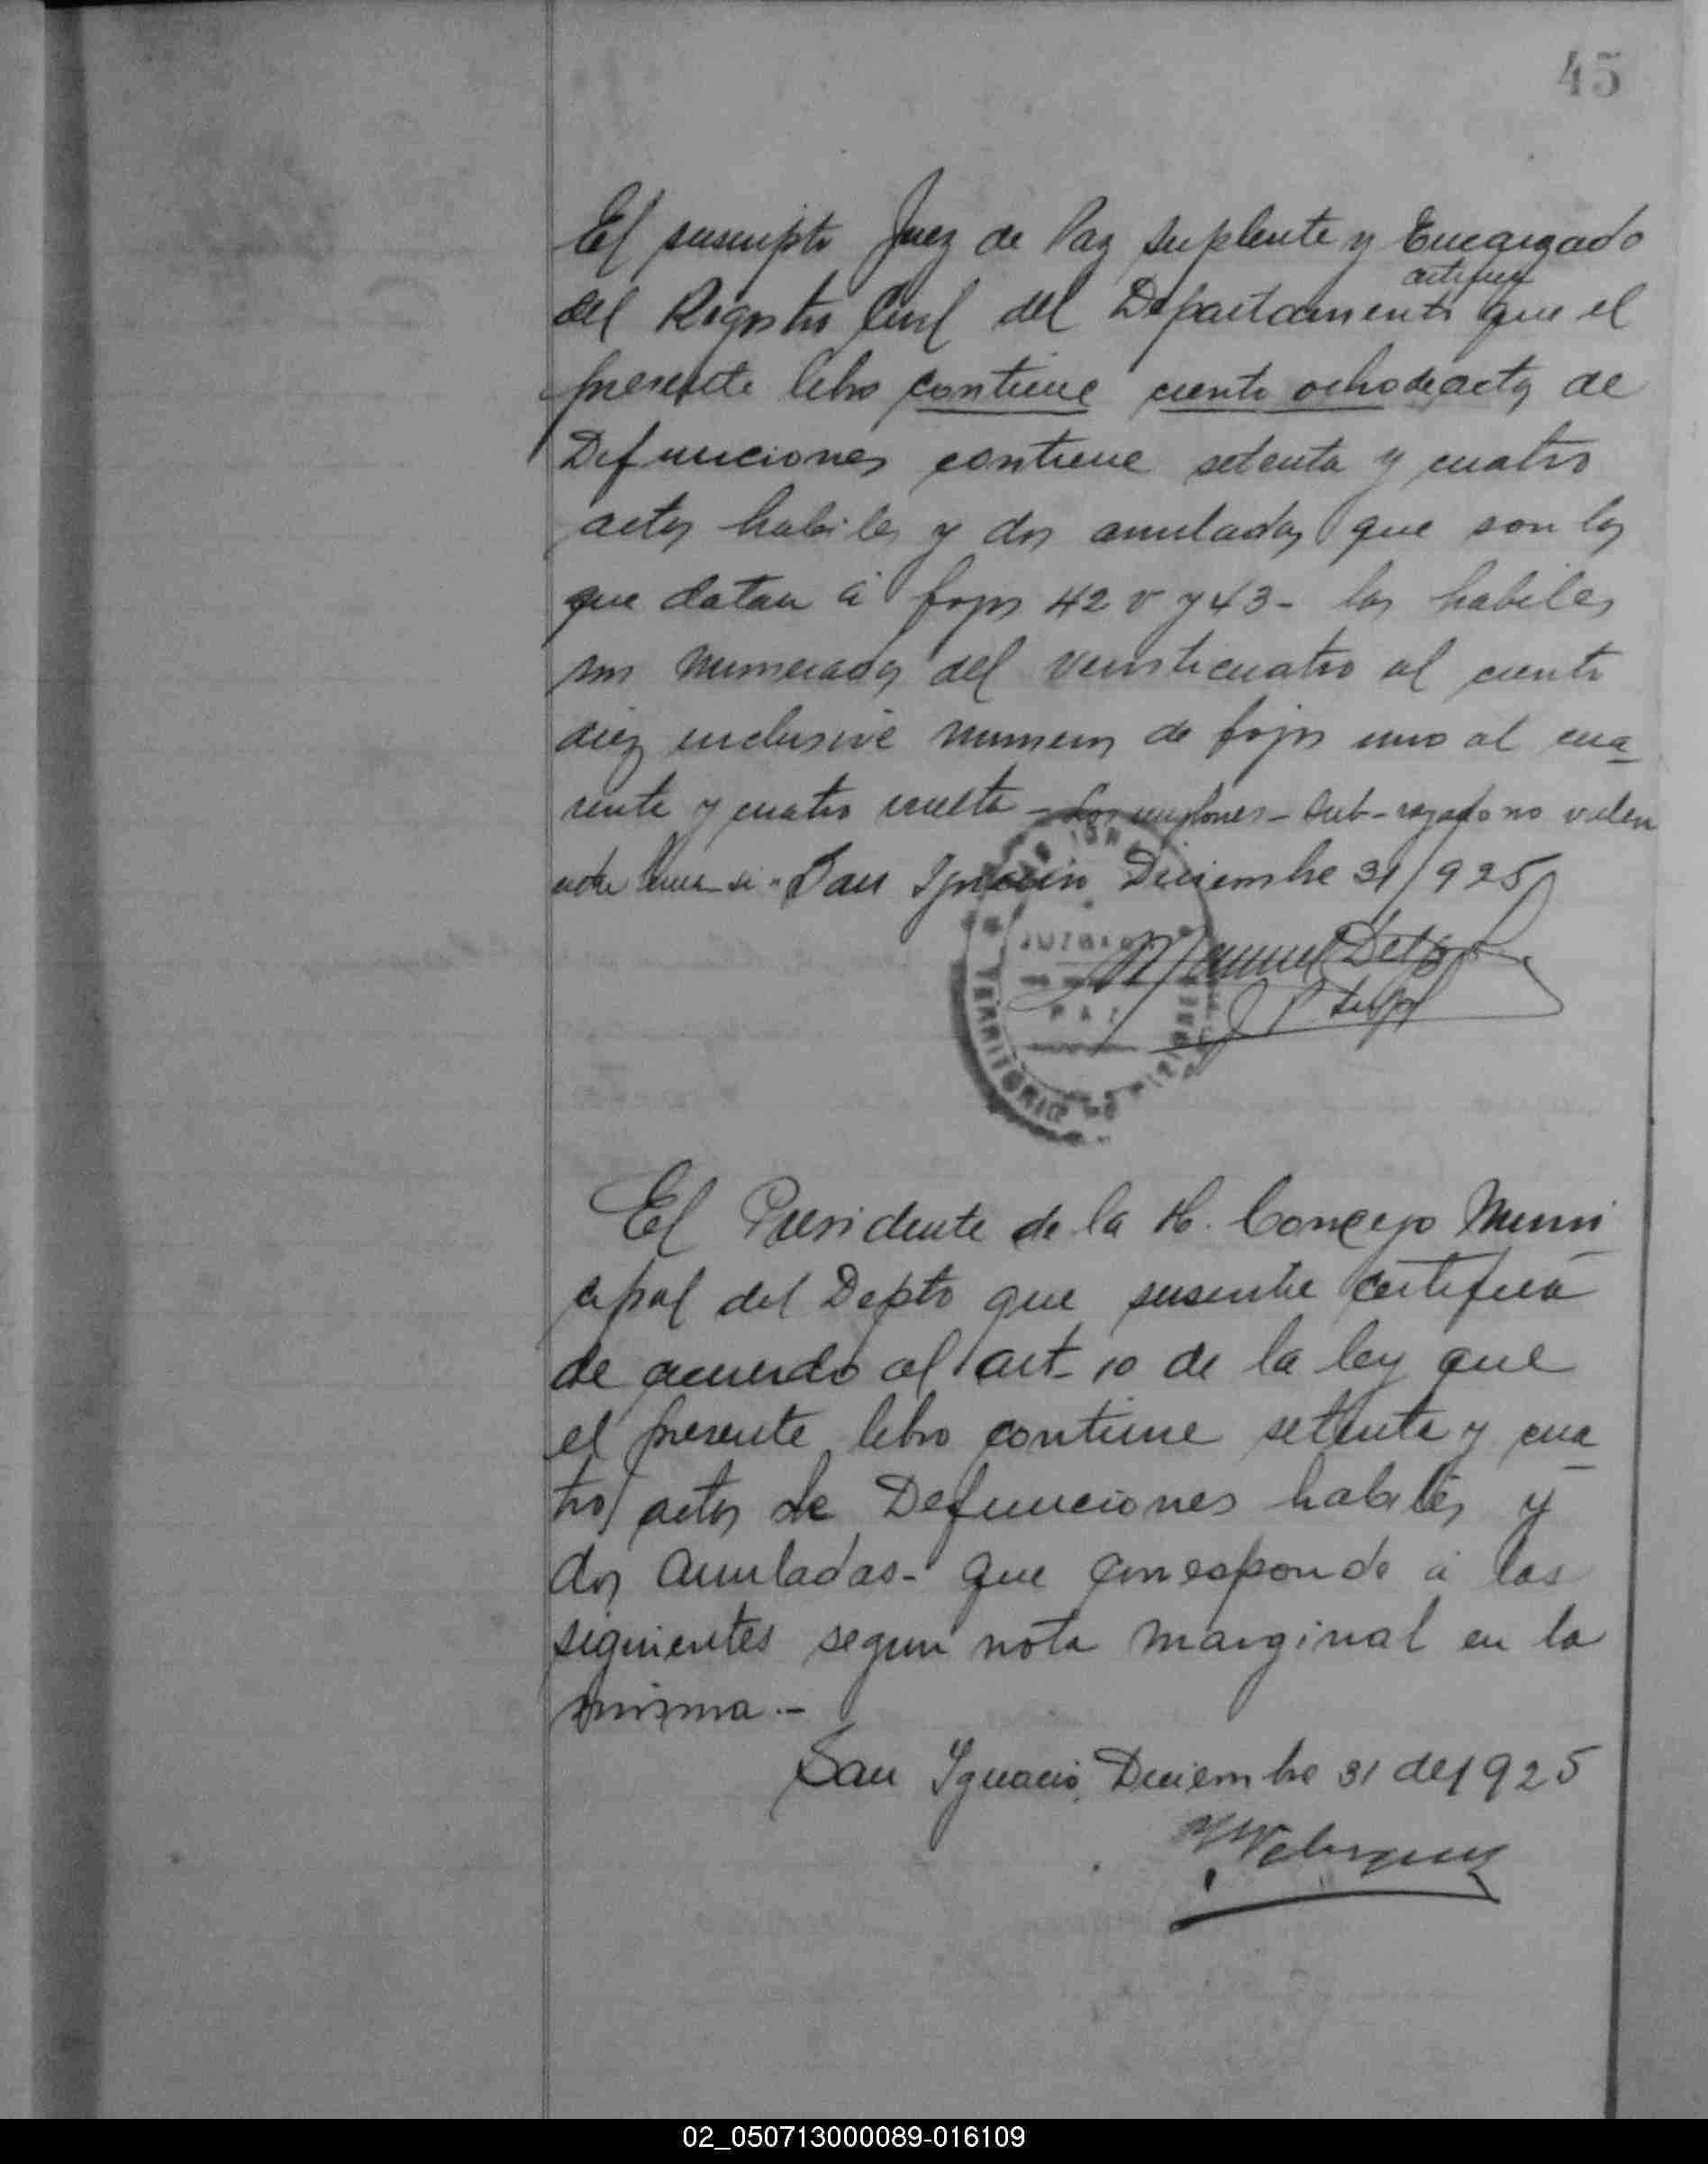 45
El suscripto Juez de Paz Suplente y Encargado
certifica
del Registro Civil del Departamento que el
presente libro contiene ciento ocho de actas de
Defunciones contiene setenta y cuatro
actas habiles y dos anuladas que son las
que datan á fojas 42 v y 43 - las habiles
son numeradas del veinticuatro al ciento
diez inclusive numeros de fojas uno al cua
renta y cuatro vuelta - Los renglones - sub-rayado no valen
entre linea si - San Ignacio Diciembre 31/925
Manuel Delgado
J. P. Supl
JUZGADO
DE
PAZ
TERRITORIO DE MISIONES
El Presidente de la H. Concejo Muni
cipal del Depto que suscribe certifica
de acuerdo al art- 10 de la ley que
el presente libro contiene setenta y cua
tro actas de Defunciones habiles y
dos anuladas - que corresponde á las
siguientes segun nota marginal en la
misma.-
San Ignacio, Diciembre 31 de 1925
Velazquez
02_050713000089-016109